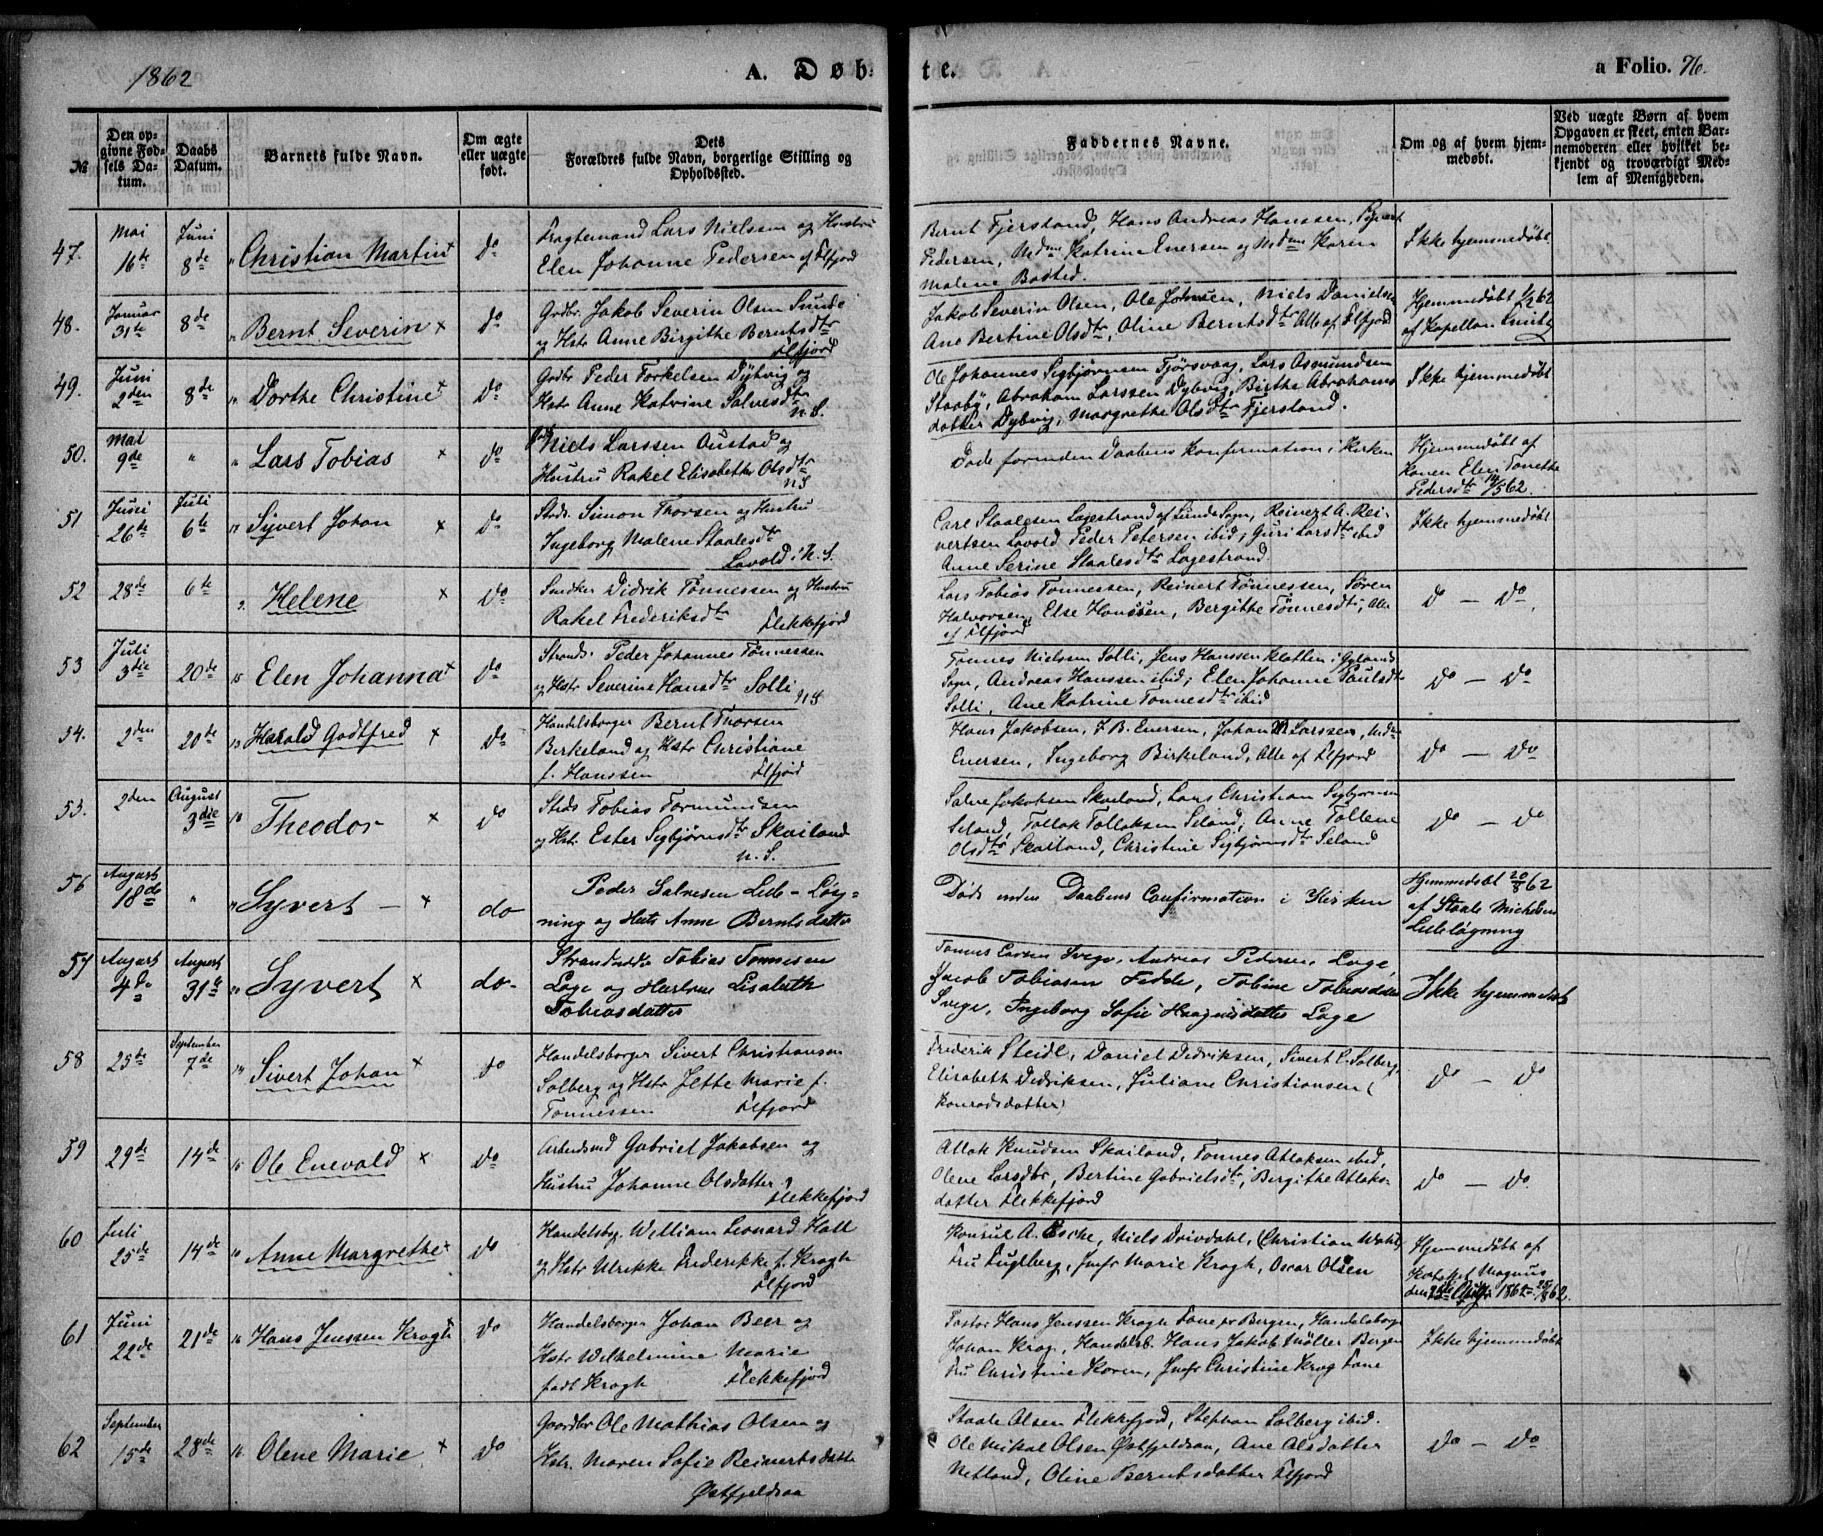 1862
A. Døb-
te.
a Folio. 76.
№
Den op-
givne Fød-
sels Da-
tum.
Daabs
Datum.
Barnets fulde Navn.
Om ægte
eller uægte
født.
Dets
Forældres fulde Navn, borgerlige Stilling og
Opholdssted.
Faddernes Navne.
Om og af hvem hjem-
medøbt.
Ved uægte Børn af hvem
Opgaven er skeet, enten Bar-
nemoderen eller hvilket be-
kjendt og troværdigt Med-
lem af Menigheden.
47.
Mai
16de
Juni
8de
Christian Martin
do
Fragtemand Lars Nielssen og Hustru
Elen Johanne Pedersen af Flfjord
Bernt Fjersland, Hans Andreas Hanssen, Syvert
Pedersen, Mdm Katrine Enersen og Mdm Karen
Malene Basted.
Ikke hjemmedøbt
48.
Januar
31te
8de
Bernt Severin
do
Grdbr. Jakob Severin Olsen Sunde
og Hstr Anne Birgithe Berntsdtr
Flfjord
Jakob Severin Olsen, Ole Johnsen, Niels Danielsen
Ane Bertine Olsdtr, Oline Berntsdtr Alle af Flfjord
Hjemmedøbt 1/2 62
af Kapellan Smith
49.
Juni
2den
8de
Dorthe Christine
do
Grdbr Peder Torkelsen Dybvig og
Hstr Anne Katrine Salvesdtr
N.S.
Ole Johannes Sigbjørnsen Fjørsvaag, Lars Asmundsen
Staaby, Abraham Larssen Dybvig, Birgthe Abrahams
datter Dybvig, Margrethe Olsdtr Fjersland.
Ikke hjemmedøbt
50.
Mai
9de
"
Lars Tobias
do
Niels Larssen Austad og
Hustru Rakel Elisabeth Olsdtr
NS
Døde forinden Daabens Konfirmation i Kirken
Hjemmedøbt af
Konen Elen Tonette
Pedersdtr 14/5 62.
51
Juni
26de
Juli
6te
Syvert Johan
do
Stds. Simon Thorsen og Hustru
Ingeborg Malene Staalesdtr
Lavold i N.S.
Carl Staalesen Lagestrand af Lunde Sogn, Reinert A. Rei-
nertsen Lavold Peder Petersen ibid; Guri Larsdtr ibid
Anne Serine Staalesdtr Lagestrand.
Ikke hjemmedøbt
52
28de
6te
Helene
do
Snedker Didrik Tønnessen og Hustru
Rakel Frederiksdtr
Flekkefjord
Lars Tobias Tønnessen, Reinert Tønnessen, Søren
Halvorsen, Else Hanssen, Bergitte Tønnesdtr; Alle
af Flfjord
do — do.
53
Juli
3die
20de
Elen Johanna
do
Strands. Peder Johannes Tønnessen
og Hstr Severine Hansdtr Solli
NS
Tønnes Nielssen Solli, Jens Hanssen Klatten i Gylands
Sogn, Andreas Hanssen ibid; Elen Johanne Paulsdtr
Solli, Ane Katrine Tønnesdtr ibid
do — do
54.
2den
20de
Harald Godtfred
do
Handelsborger Bernt Thorsen
Berkeland og Hstr Christiane
f. Hanssen Flfjord
Hans Jakobsen, J. B. Enersen, Johan M Larssen, Mdm
Enersen, Ingeborg Birkeland, Alle af Flfjord
do — do
53.
2den
August
3die
Theodor
do
Stds Tobias Tormundsen
og Hstr. Ester Sigbjørnsdtr Skailand
N. S.
Salve Jakobsen Skailand, Lars Christian Sigbjørnsen
Seland, Tollak Tollaksen Seland; Anne Tollene
Olsdtr Skailand, Christine Sigbjørnsdtr Seland
do — do
56
August
18de
"
Syvert
do
Peder Salvesen Lille-Løg-
ning og Hust. Anne Berntsdatter
Døde inden Daabens Confirmation i Kirken
Hjemmedøbt 20/8 62
af Staale Michelsen
Lilleløgning
57
August
4de
August
31te
Syvert
do-
Strandsidder Tobias Tønnesen
Loge og Hustrue Lisabeth
Tobiasdatter
Tønnes Larsen Svege, Andreas Pedersen Loge,
Jacob Tobiasen Fedde, Tobine Tobiasdatter
Svege, Ingeborg Sofie Haagensdatter Loge
Ikke hjemmedøbt
58
25de
September
7de
Sivert Johan
do
Handelsborger Sivert Christiansen
Solberg og Hstr Jette Marie f.
Tønnessen Flfjord
Frederik Steidl, Daniel Dedriksen, Sivert C. Solberg,
Elisabeth Dedriksen, Juliane Christiansen (
Konradsdatter)
do — do
59
29de
14de
Ole Enevald
do
Arbeidsmd Gabriel Jakobsen og
Hustru Johanne Olsdatter
Flekkefjord
Atlak Knudsen Skailand, Tønnes Atlaksen ibid,
Olene Larsdtr, Bertine Gabrielsdtr, Bergithe Atlaks-
datter Flekkefjord
do — do
60
Juli
25de
14de
Anne Margrethe
do
Handelsbg. William Leonard Hall
og Hstr Ulrikke Frederikke f. Krogh
Flfjord
Konsul A. Esche, Niels Drivdahl, (Christian Wahl)
Fru Fuglberg, Jmfr Marie Krogh, Oscar Olsen
Hjemmedøbt af
Kateket Magnus
1862 25/8 62.
61
Juni
22de
21de
Hans Jenssen Krogh
do
Handelsborger Johan Beer og
Hstr Wilhelmine Marie
født Krogh Flekkefjord
Pastor Hans Jenssen Krogh Fane pr Bergen, Handelsborger
Johan Krog, Handelsb. Hans Jakob Møller Bergen
Fru Christine Koren, Jmfr Christine Krog Fane
Ikke hjemmedøbt
62
September
15de
28de
Olene Marie
do
Gaardbr Ole Mathias Olsen og
Hstr. Maren Sofie Reinertsdatter
Østfjeldsaa
Staale Olsen Flekkefjord, Stephan Solberg ibid.
Ole Mikal Olsen Østfjeldsaa, Ane Alsdatter
Netland, Oline Berntsdatter Flfjord
do — do